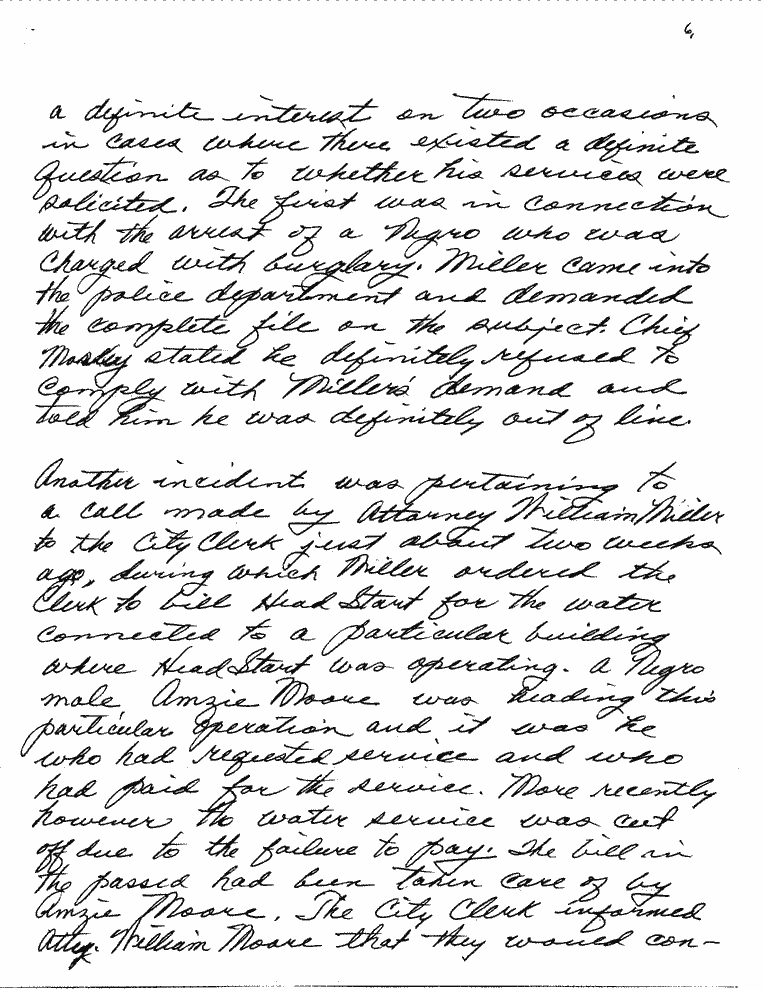 6,
a definite interest on two occasions
in cases where there existed a definite
question as to whether his services were
solicited. The first was in connection
with the arrest of a Negro who was
charged with burglary. Miller came into
the police department and demanded
the complete file on the subject. Chief
Mosley stated he definitely refused to
comply with Miller's demand and
told him he was definitely out of line.
Another incident was pertaining to
a call made by Attorney William Miller
to the City Clerk just about two weeks
ago, during which Miller ordered the
Clerk to bill Head Start for the water
connected to a particular building
where Head Start was operating. A Negro
male Amzie Moore was heading this
particular operation and it was he
who had requested service and who
had paid for the service. More recently
however the water service was cut
off due to the failure to pay. The bill in
the passed had been taken care of by
Amzie Moore. The City Clerk informed
Atty. William Moore that they would con-